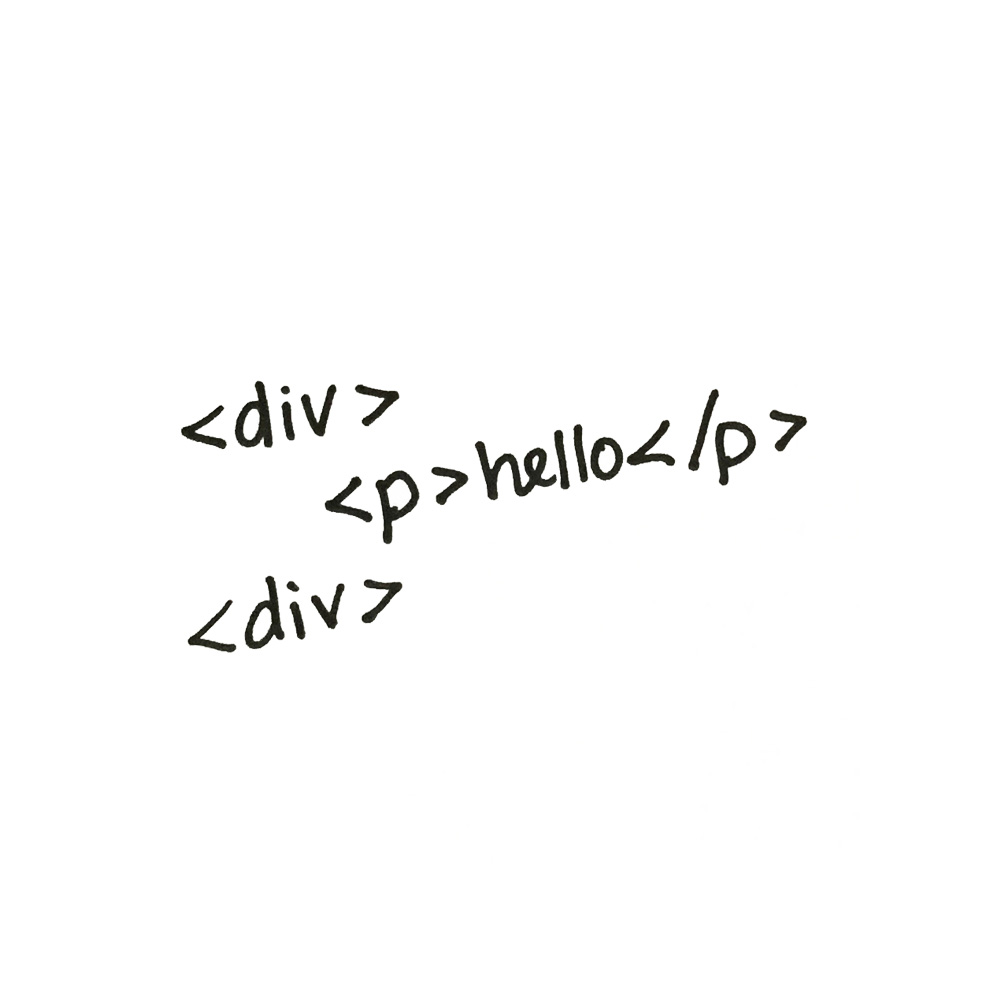 <div>
<p>hello</p>
<div>